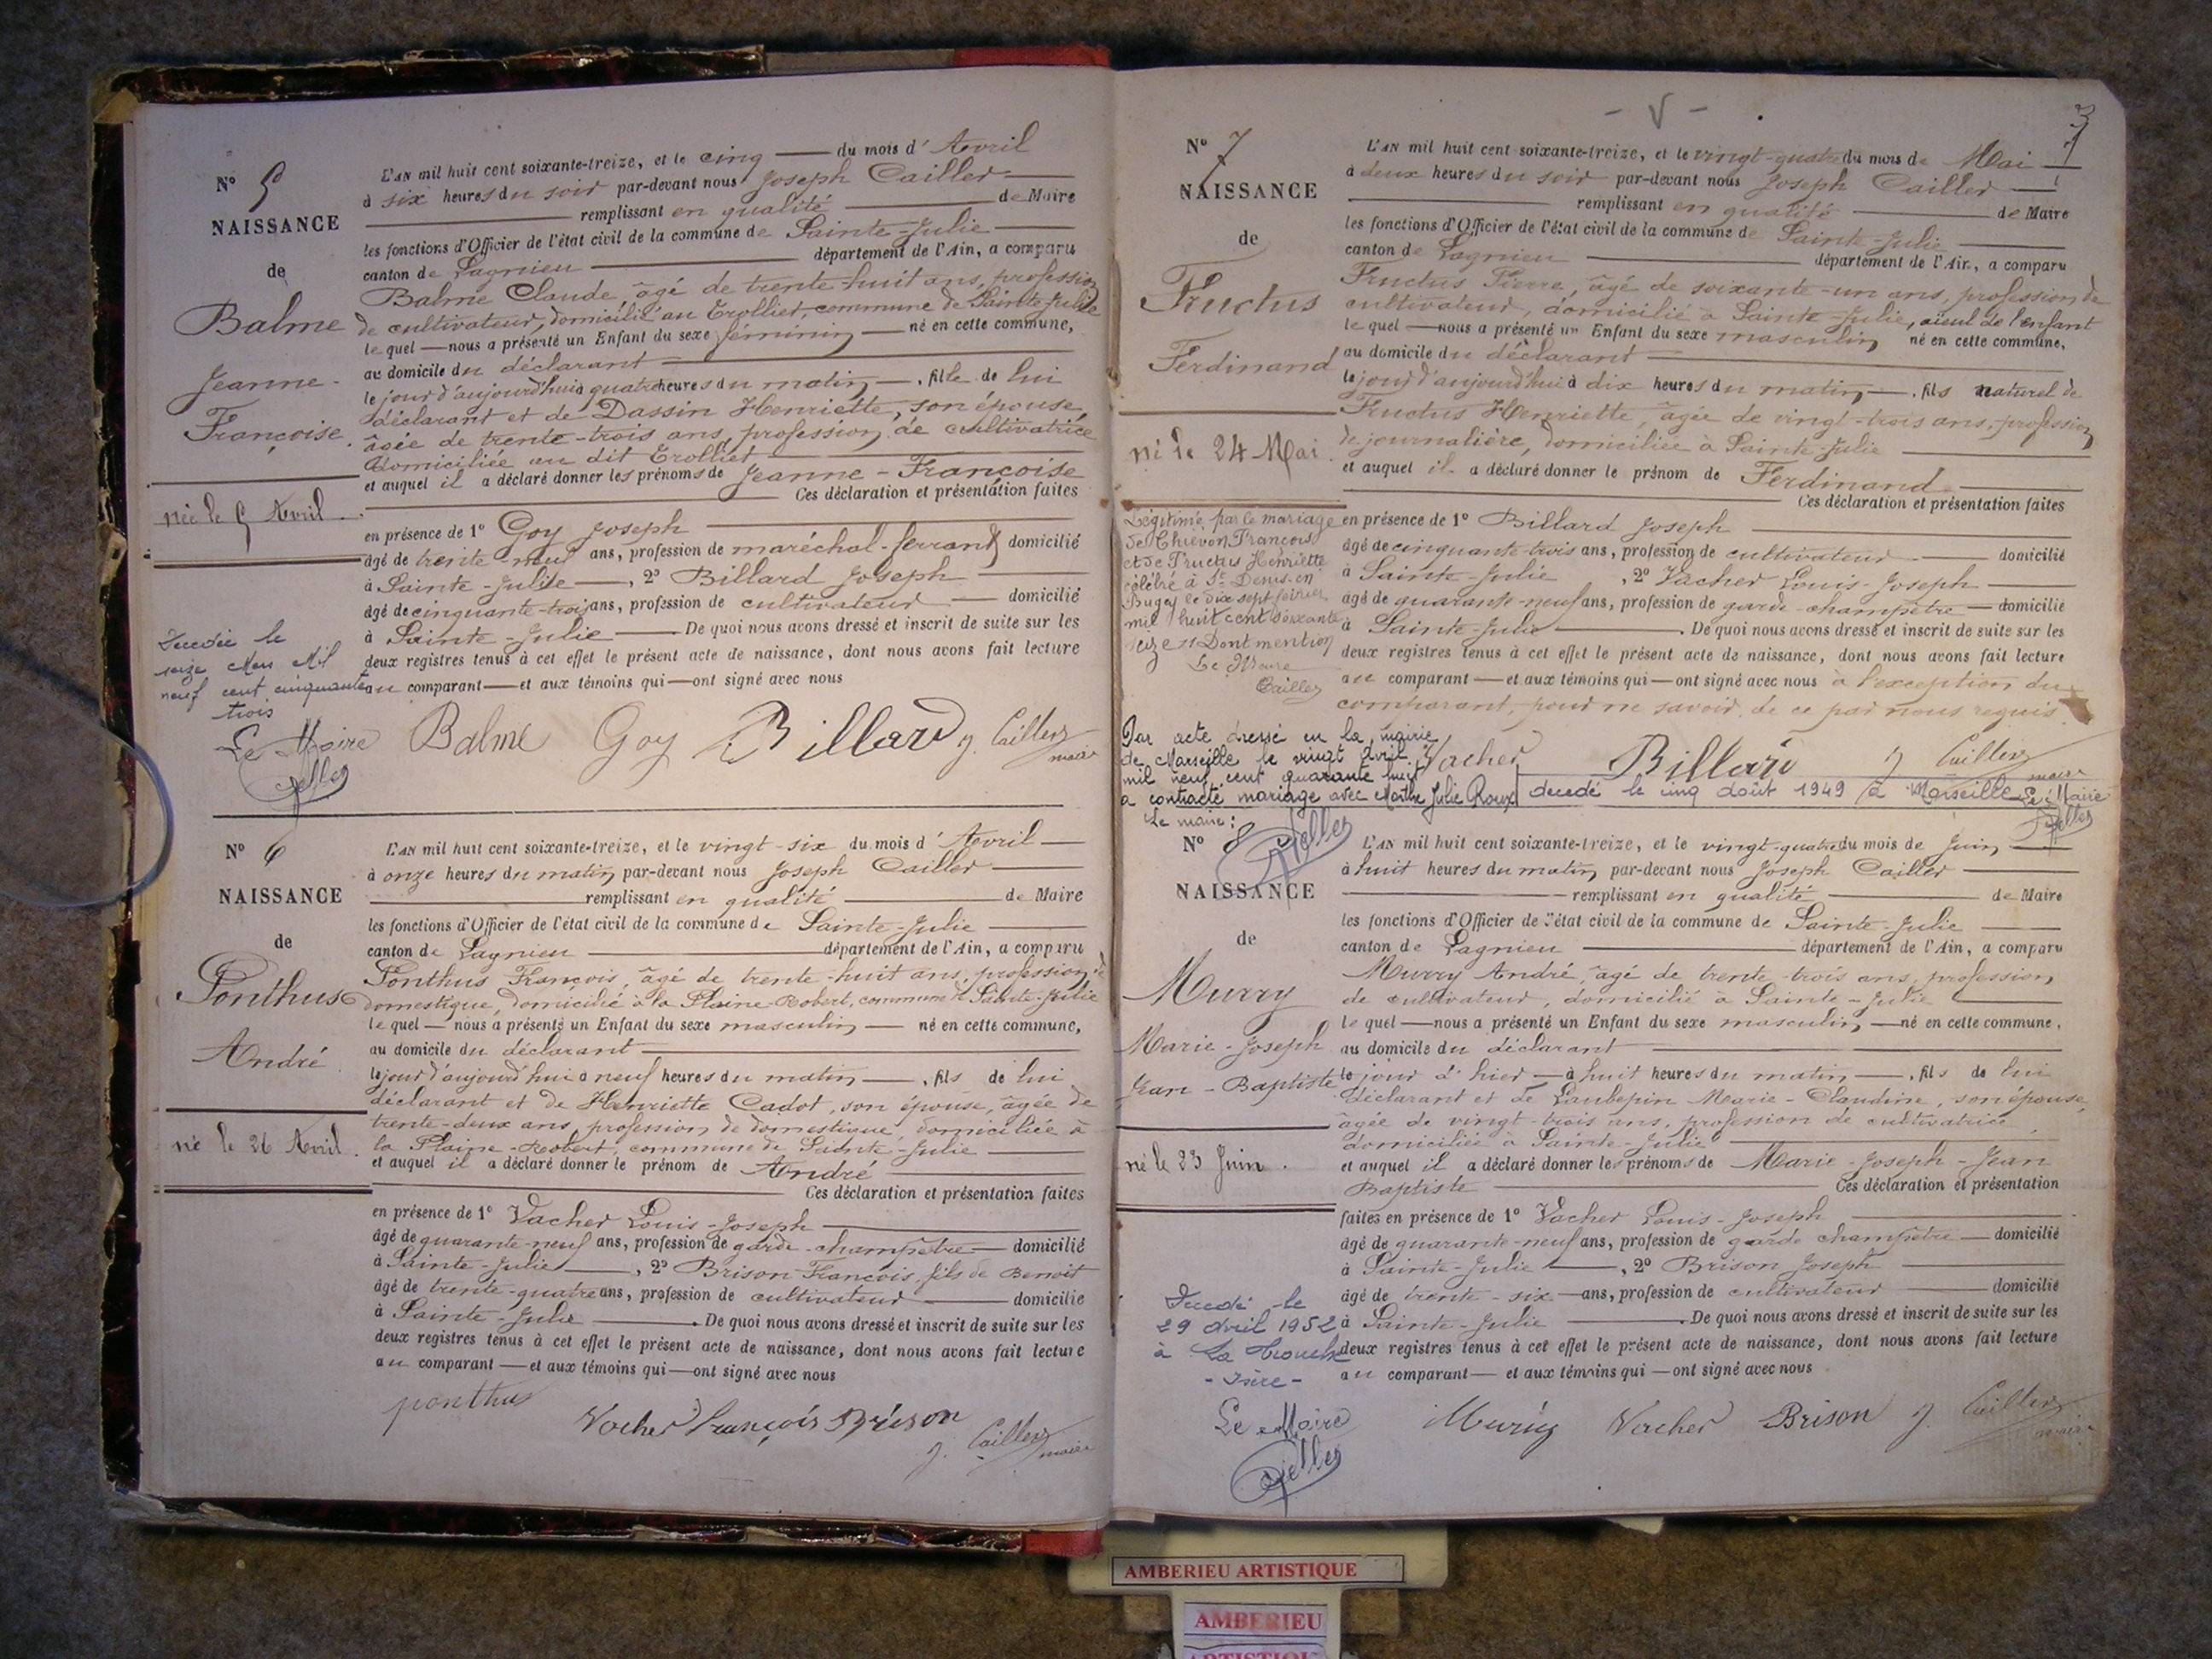 N° 5
NAISSANCE
de
Balme
Jeanne-
Françoise.
née le 5 Avril
Décédée le
seize Mars Mil
neuf cent cinquante
trois
Le Maire
L'AN mil huit cent soixante-treize, et le cinq du mois d'Avril
à six heures du soir par-devant nous Joseph Cailler
remplissant en qualité de Maire
les fonctions d'Officier de l'état civil de la commune de Sainte-Julie
canton de Lagnieu département de l'Ain, a comparu
Balme Claude, âgé de trente-huit ans, profession
de cultivateur, domicilié au Trolliet, commune de Sainte-Julie
lequel nous a présenté un Enfant du sexe féminin né en cette commune,
au domicile du déclarant
le jour d'aujourd'hui à quatre heures du matin, fille de lui
déclarant et de Dassin Henriette, son épouse,
âgée de trente-trois ans, profession de cultivatrice
domiciliée au dit Trolliet
et auquel il a déclaré donner les prénoms de Jeanne-Françoise
Ces déclaration et présentation faites
en présence de 1° Goy Joseph
âgé de trente-neuf ans, profession de maréchal-ferrant domicilié
à Sainte-Julie, 2° Billard Joseph
âgé de cinquante-trois ans, profession de cultivateur domicilié
à Sainte-Julie. De quoi nous avons dressé et inscrit de suite sur les
deux registres tenus à cet effet le présent acte de naissance, dont nous avons fait lecture
au comparant et aux témoins qui ont signé avec nous
Balme Goy Billard J. Cailler
maire
N° 6
NAISSANCE
de
Ponthus
André
né le 26 Avril.
L'AN mil huit cent soixante-treize, et le vingt-six du mois d'Avril
à onze heures du matin par-devant nous Joseph Cailler
remplissant en qualité de Maire
les fonctions d'Officier de l'état civil de la commune de Sainte-Julie
canton de Lagnieu département de l'Ain, a comparu
Ponthus François, âgé de trente-huit ans, profession de
domestique, domicilié à la Plaine-Robert, commune de Sainte-Julie
lequel nous a présenté un Enfant du sexe masculin né en cette commune,
au domicile du déclarant
le jour d'aujourd'hui à neuf heures du matin, fils de lui
déclarant et de Henriette Cadot, son épouse, âgée de
trente-deux ans, profession de domestique, domiciliée à
la Plaine-Robert, commune de Sainte-Julie
et auquel il a déclaré donner le prénom de André
Ces déclaration et présentation faites
en présence de 1° Vacher Louis-Joseph
âgé de quarante-neuf ans, profession de garde-champêtre domicilié
à Sainte-Julie, 2° Brison François, fils de Benoit
âgé de trente-quatre ans, profession de cultivateur domicilié
à Sainte-Julie. De quoi nous avons dressé et inscrit de suite sur les
deux registres tenus à cet effet le présent acte de naissance, dont nous avons fait lecture
au comparant et aux témoins qui ont signé avec nous
ponthus
Vacher François Brison
J. Cailler
maire
- V -
3
N° 7
NAISSANCE
de
Fructus
Ferdinand
né le 24 Mai.
Légitimé par le mariage
de Chiévon François
et de Fructus Henriette
célébré à St Denis-en-
Bugey le dix sept février
mil huit cent soixante
seize. Dont mention
Le Maire
Cailler
Par acte dressé en la mairie
de Marseille le vingt Avril
mil neuf cent quarante huit
a contracté mariage avec Marthe Julie Roux
Le maire:
L'AN mil huit cent soixante-treize, et le vingt-quatre du mois de Mai
à deux heures du soir par-devant nous Joseph Cailler
remplissant en qualité de Maire
les fonctions d'Officier de l'état civil de la commune de Sainte-Julie
canton de Lagnieu département de l'Ain, a comparu
Fructus Pierre, âgé de soixante-un ans, profession de
cultivateur, domicilié à Sainte-Julie, aïeul de l'enfant
lequel nous a présenté un Enfant du sexe masculin né en cette commune,
au domicile du déclarant
le jour d'aujourd'hui à dix heures du matin, fils naturel de
Fructus Henriette, âgée de vingt-trois ans, profession
de journalière, domiciliée à Sainte-Julie
et auquel il a déclaré donner le prénom de Ferdinand
Ces déclaration et présentation faites
en présence de 1° Billard Joseph
âgé de cinquante-trois ans, profession de cultivateur domicilié
à Sainte-Julie, 2° Vacher Louis-Joseph
âgé de quarante-neuf ans, profession de garde-champêtre domicilié
à Sainte-Julie. De quoi nous avons dressé et inscrit de suite sur les
deux registres tenus à cet effet le présent acte de naissance, dont nous avons fait lecture
au comparant et aux témoins qui ont signé avec nous à l'exception du
comparant, pour ne savoir, de ce par nous requis.
Vacher Billard J. Cailler
maire
décédé le cinq août 1949 à Marseille Le Maire
N° 8
NAISSANCE
de
Murry
Marie-Joseph
Jean-Baptiste
né le 23 Juin.
Décédé le
29 Avril 1952
à La Tronche
- Isère -
Le Maire
L'AN mil huit cent soixante-treize, et le vingt-quatre du mois de Juin
à huit heures du matin par-devant nous Joseph Cailler
remplissant en qualité de Maire
les fonctions d'Officier de l'état civil de la commune de Sainte-Julie
canton de Lagnieu département de l'Ain, a comparu
Murry André, âgé de trente-trois ans, profession
de cultivateur, domicilié à Sainte-Julie
lequel nous a présenté un Enfant du sexe masculin, né en cette commune,
au domicile du déclarant
le jour d'hier à huit heures du matin, fils de lui
déclarant et de Laubepin Marie-Claudine, son épouse,
âgée de vingt-trois ans, profession de cultivatrice,
domiciliée à Sainte-Julie
et auquel il a déclaré donner les prénoms de Marie-Joseph-Jean
Baptiste Ces déclaration et présentation
faites en présence de 1° Vacher Louis-Joseph
âgé de quarante-neuf ans, profession de garde champêtre domicilié
à Sainte-Julie, 2° Brison Joseph
âgé de trente-six ans, profession de cultivateur domicilié
à Sainte-Julie. De quoi nous avons dressé et inscrit de suite sur les
deux registres tenus à cet effet le présent acte de naissance, dont nous avons fait lecture
au comparant et aux témoins qui ont signé avec nous
Murry Vacher Brison J. Cailler
maire
AMBERIEU ARTISTIQUE
AMBERIEU
ARTISTIQUE